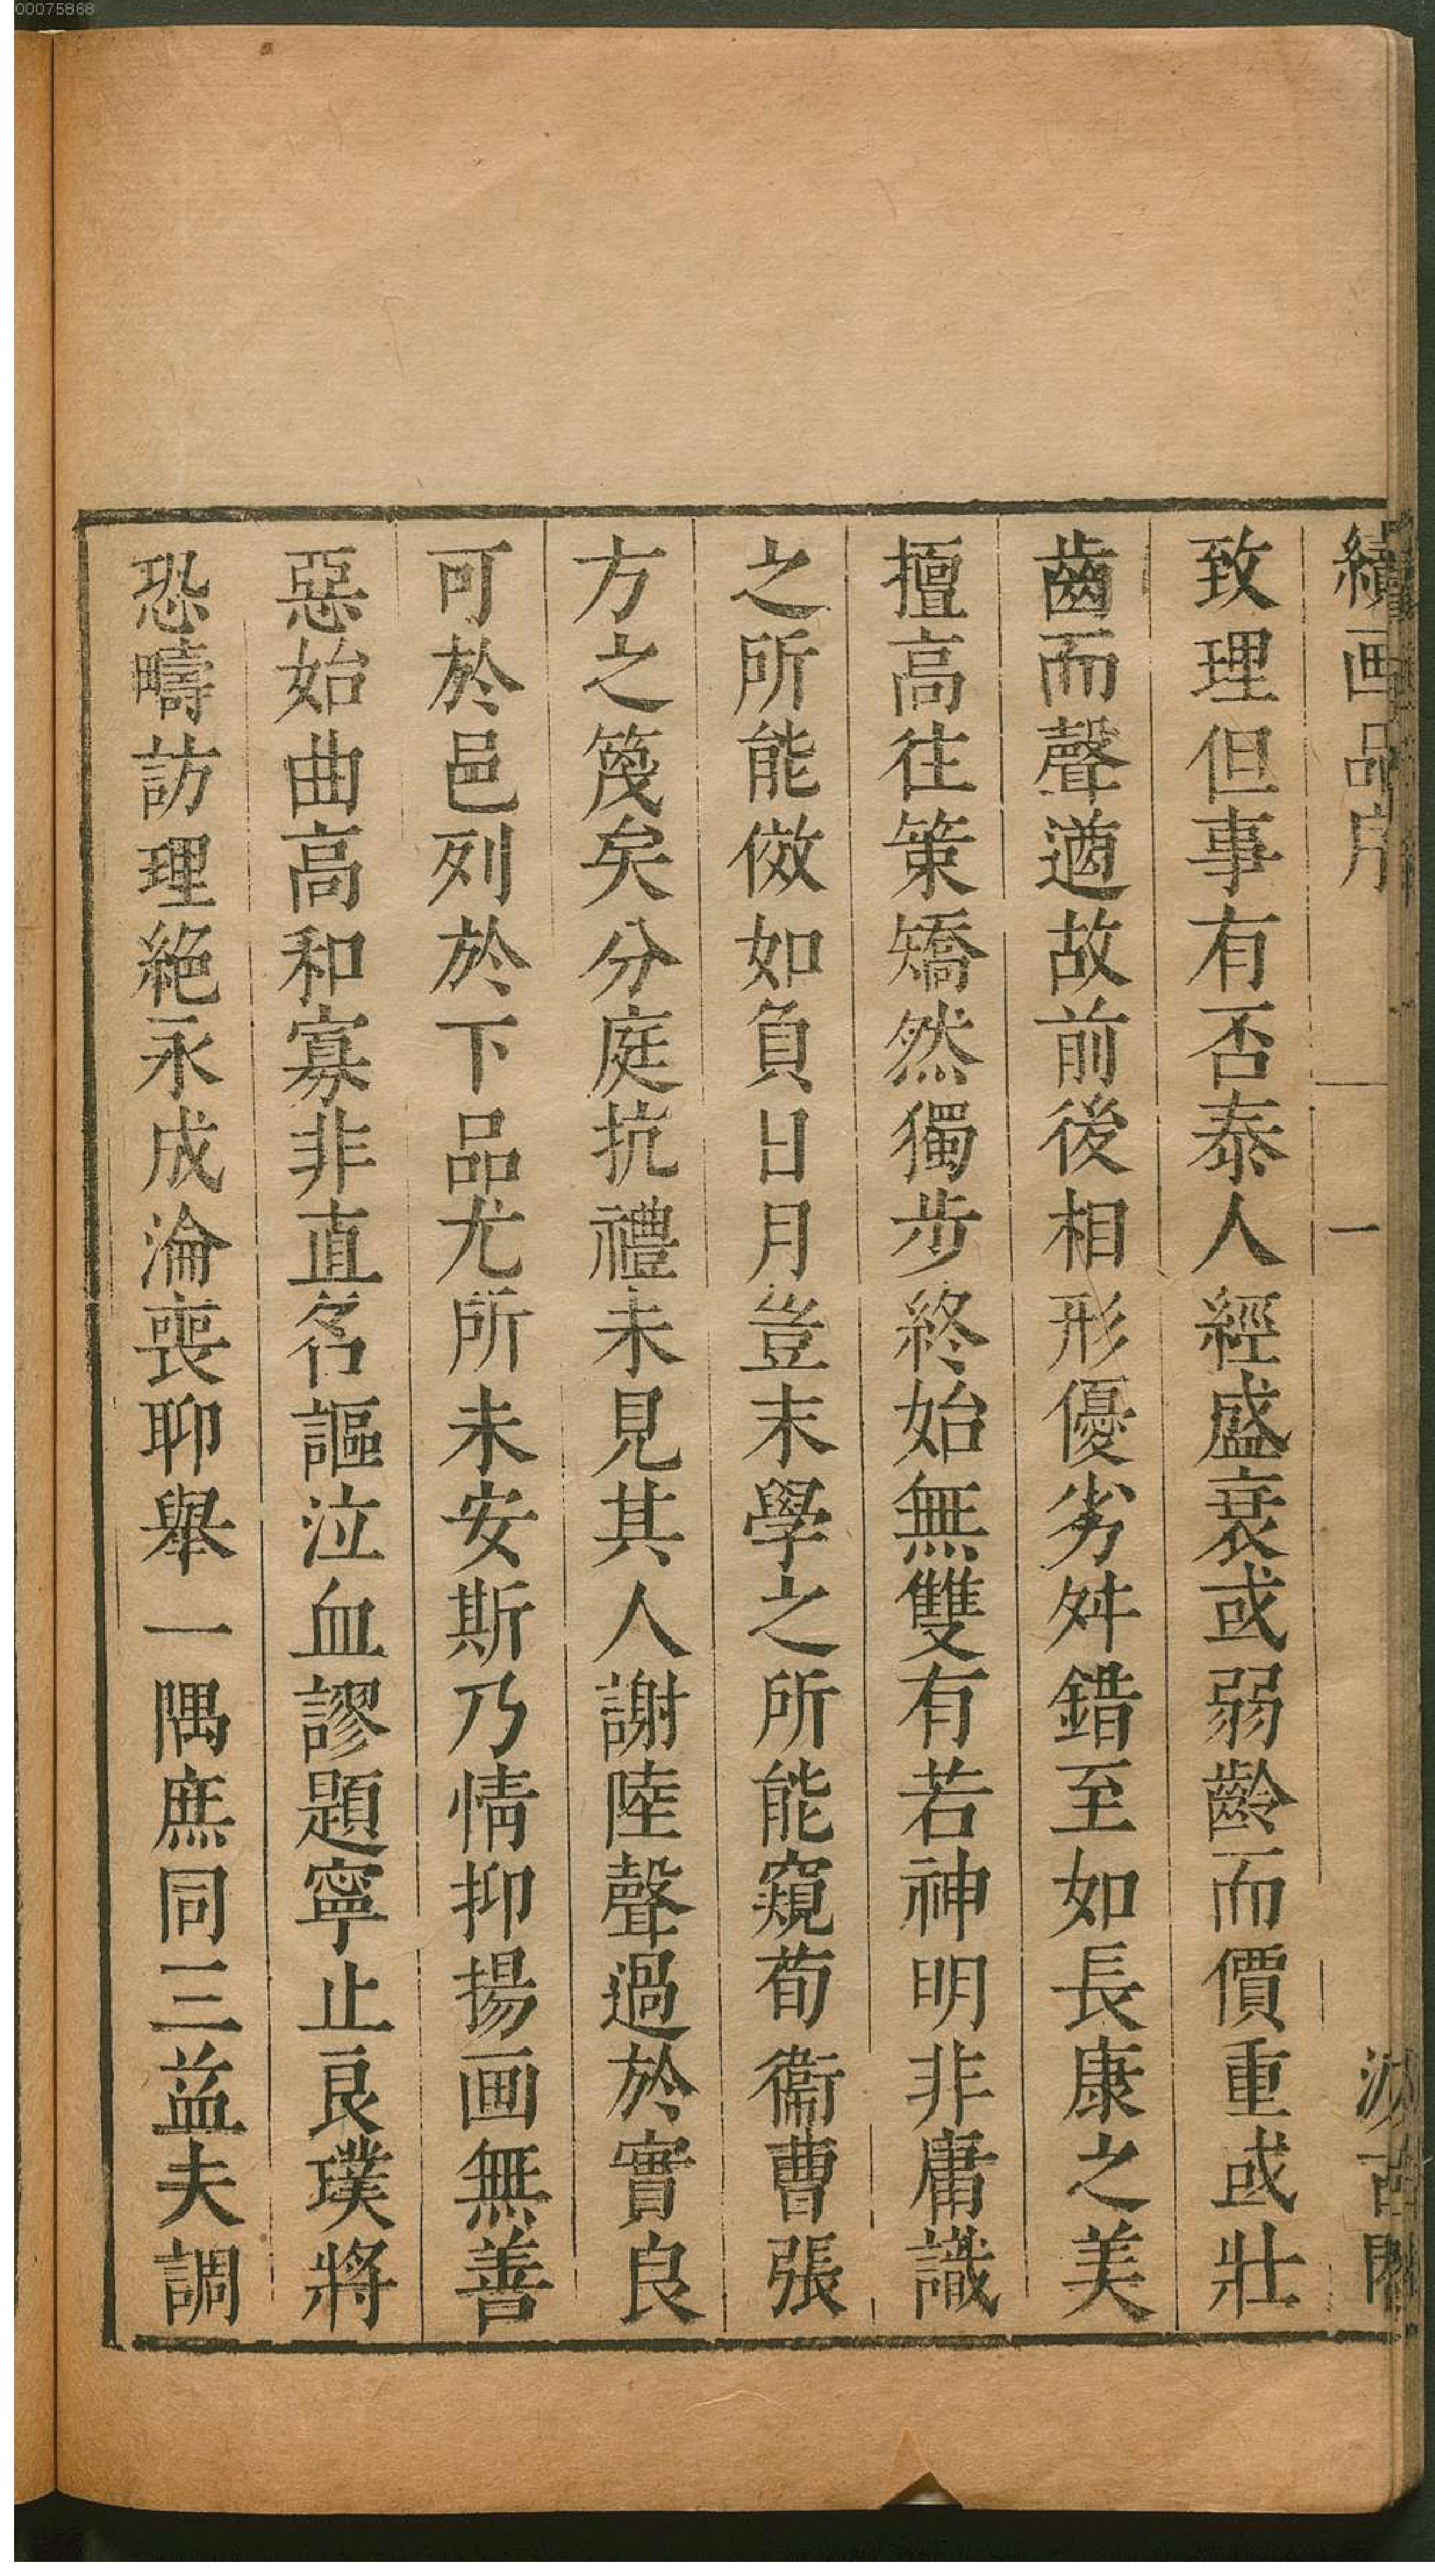 00075868
續画品序 一 汲古閣
致理但事有否泰人經盛衰或弱齡而價重或壯
齒而聲遒故前後相形優劣舛錯至如長康之美
擅高往策矯然獨步終始無雙有若神明非庸識
之所能傚如負日月豈末學之所能窺荀衞曹張
方之篾矣分庭抗禮未見其人謝陸聲過於實良
可於邑列於下品尤所未安斯乃情抑揚画無善
惡始曲高和寡非直名謳泣血謬題寧止良璞將
恐疇訪理絕永成淪喪聊舉一隅庶同三益夫調